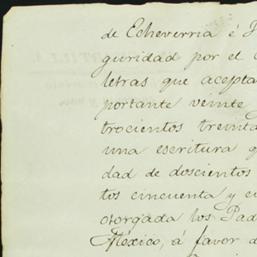 de Echeverria é
guridad por el
letras que acepta
portante veinte
trocientos treinta
una escritura
dad de doscientos
tos cincuenta y
otorgada los Pad
México, á favor d